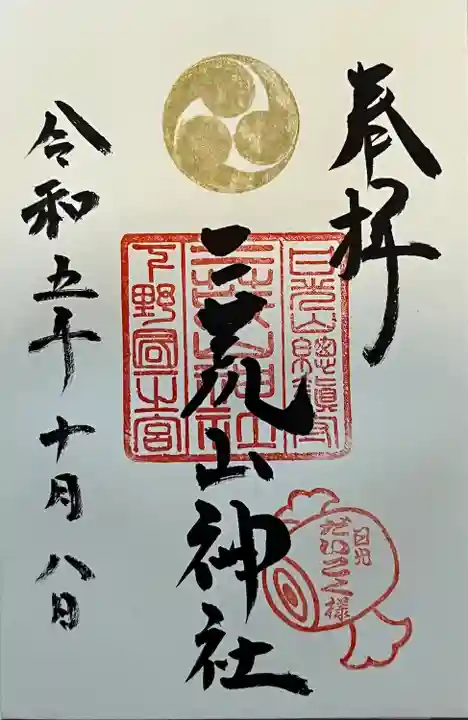 奉拝
二荒山神社
令和五年十月八日
下野國一宮
二荒山神社
日光
だいこく様